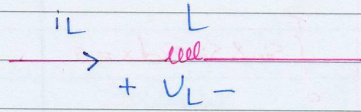 iL L
+ UL -